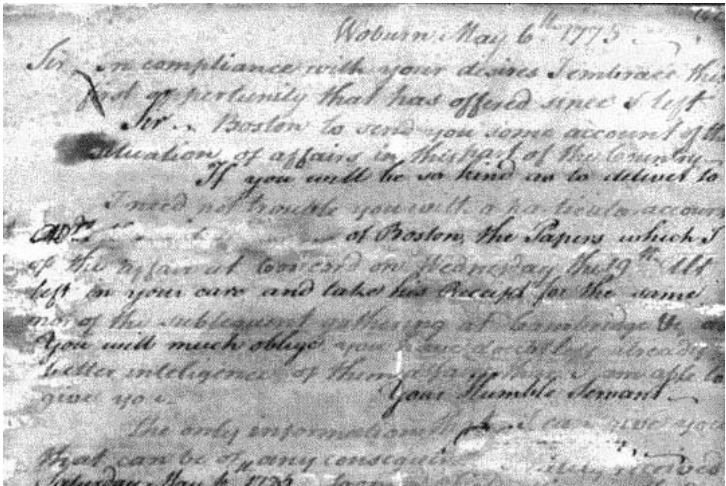 Woburn May 6th 1775
Sir, in compliance with your desires I embrace the
first oppertunity that has offered since I left
Sir. Boston to send you some account of the
situation of affairs in this part of the Country
If you will be so kind as to deliver to
I need not trouble you with a particular account
of Boston, the Papers which I
of the affair at Concord on Wednesday the 19th Ult
left in your care and take his Receipt for the same
nor of the subsequent gathering at Cambridge &c
You will much oblige you have doubtless already
better inteligence of them than I am able to
give you. Your Humble Servant
The only information that I can give you
that can be of any consequence
Saturday May 6. 1775